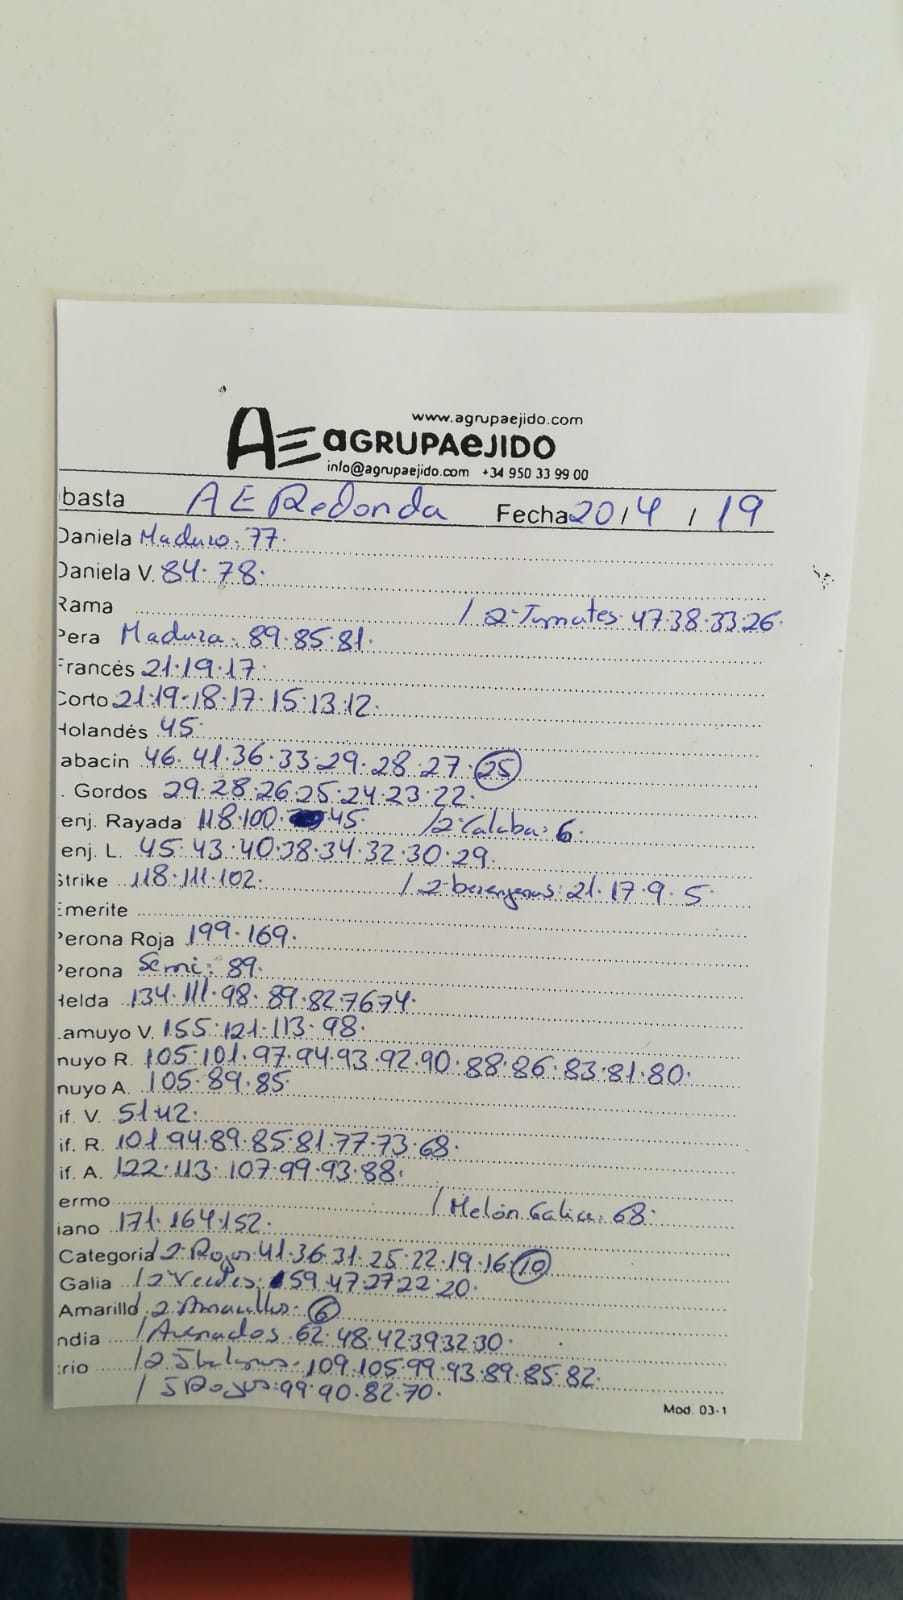 www.agrupaejido.com
AE aGRUPAeJIDO
info@agrupaejido.com +34 950 33 99 00
basta AE Redonda Fecha 20/4/19
Daniela Maduro: 77.
Daniela V. 84. 78.
Rama / 2ª Tomates: 47.38.33.26.
Pera Madura: 89.85.81.
Francés 21.19.17.
Corto 21.19.18.17.15.13.12.
Holandés 45.
abacin 46.41.36.33.29.28.27.25
. Gordos 29.28.26.25.24.23.22.
enj. Rayada 118.100. 45. / 2ª Calaba: 6.
enj. L. 45.43.40.38.34.32.30.29.
Strike 118.111.102. / 2ª berenjenas: 21.17.9.5.
Emerite
Perona Roja 199.169.
Perona Semi: 89.
Helda 134.111.98.89.82.76.74.
amuyo V. 155.121.113.98.
nuyo R. 105.101.97.94.93.92.90.88.86.83.81.80.
nuyo A. 105.89.85.
if. V. 51.42.
if. R. 101.94.89.85.81.77.73.68.
if. A. 122.113.107.99.93.88.
ermo / Melón Galia: 68.
iano 171.164.152.
Categoria / 2ª Rojos: 41.36.31.25.22.19.16.10
Galia / 2ª Verdes: 59.47.27.22.20.
Amarillo 2ª Amarillos: 6
ndia / Asurcados: 62.48.42.39.32.30.
rio / 2 Italianos: 109.105.99.93.89.85.82.
/ 5 Rojos: 99.90.82.70.
Mod. 03-1